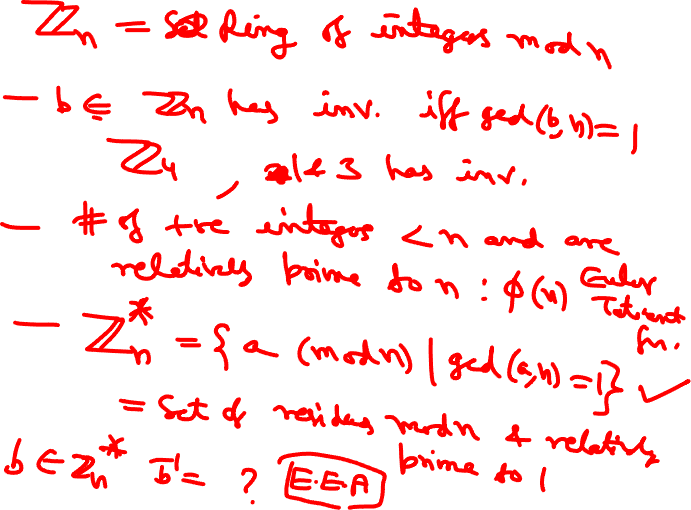 ℤn = Ring of integers mod n
— b ∈ ℤn has inv. iff gcd(b, n) = 1
ℤ4, 1 & 3 has inv.
— # of +ve integers < n and are
relatively prime to n : ϕ(n) Euler Totient fn.
— ℤn* = { a (mod n) | gcd(a, n) = 1} ✓
= Set of residues mod n & relatively
prime to 1
b ∈ ℤn* b⁻¹ = ? E.E.A